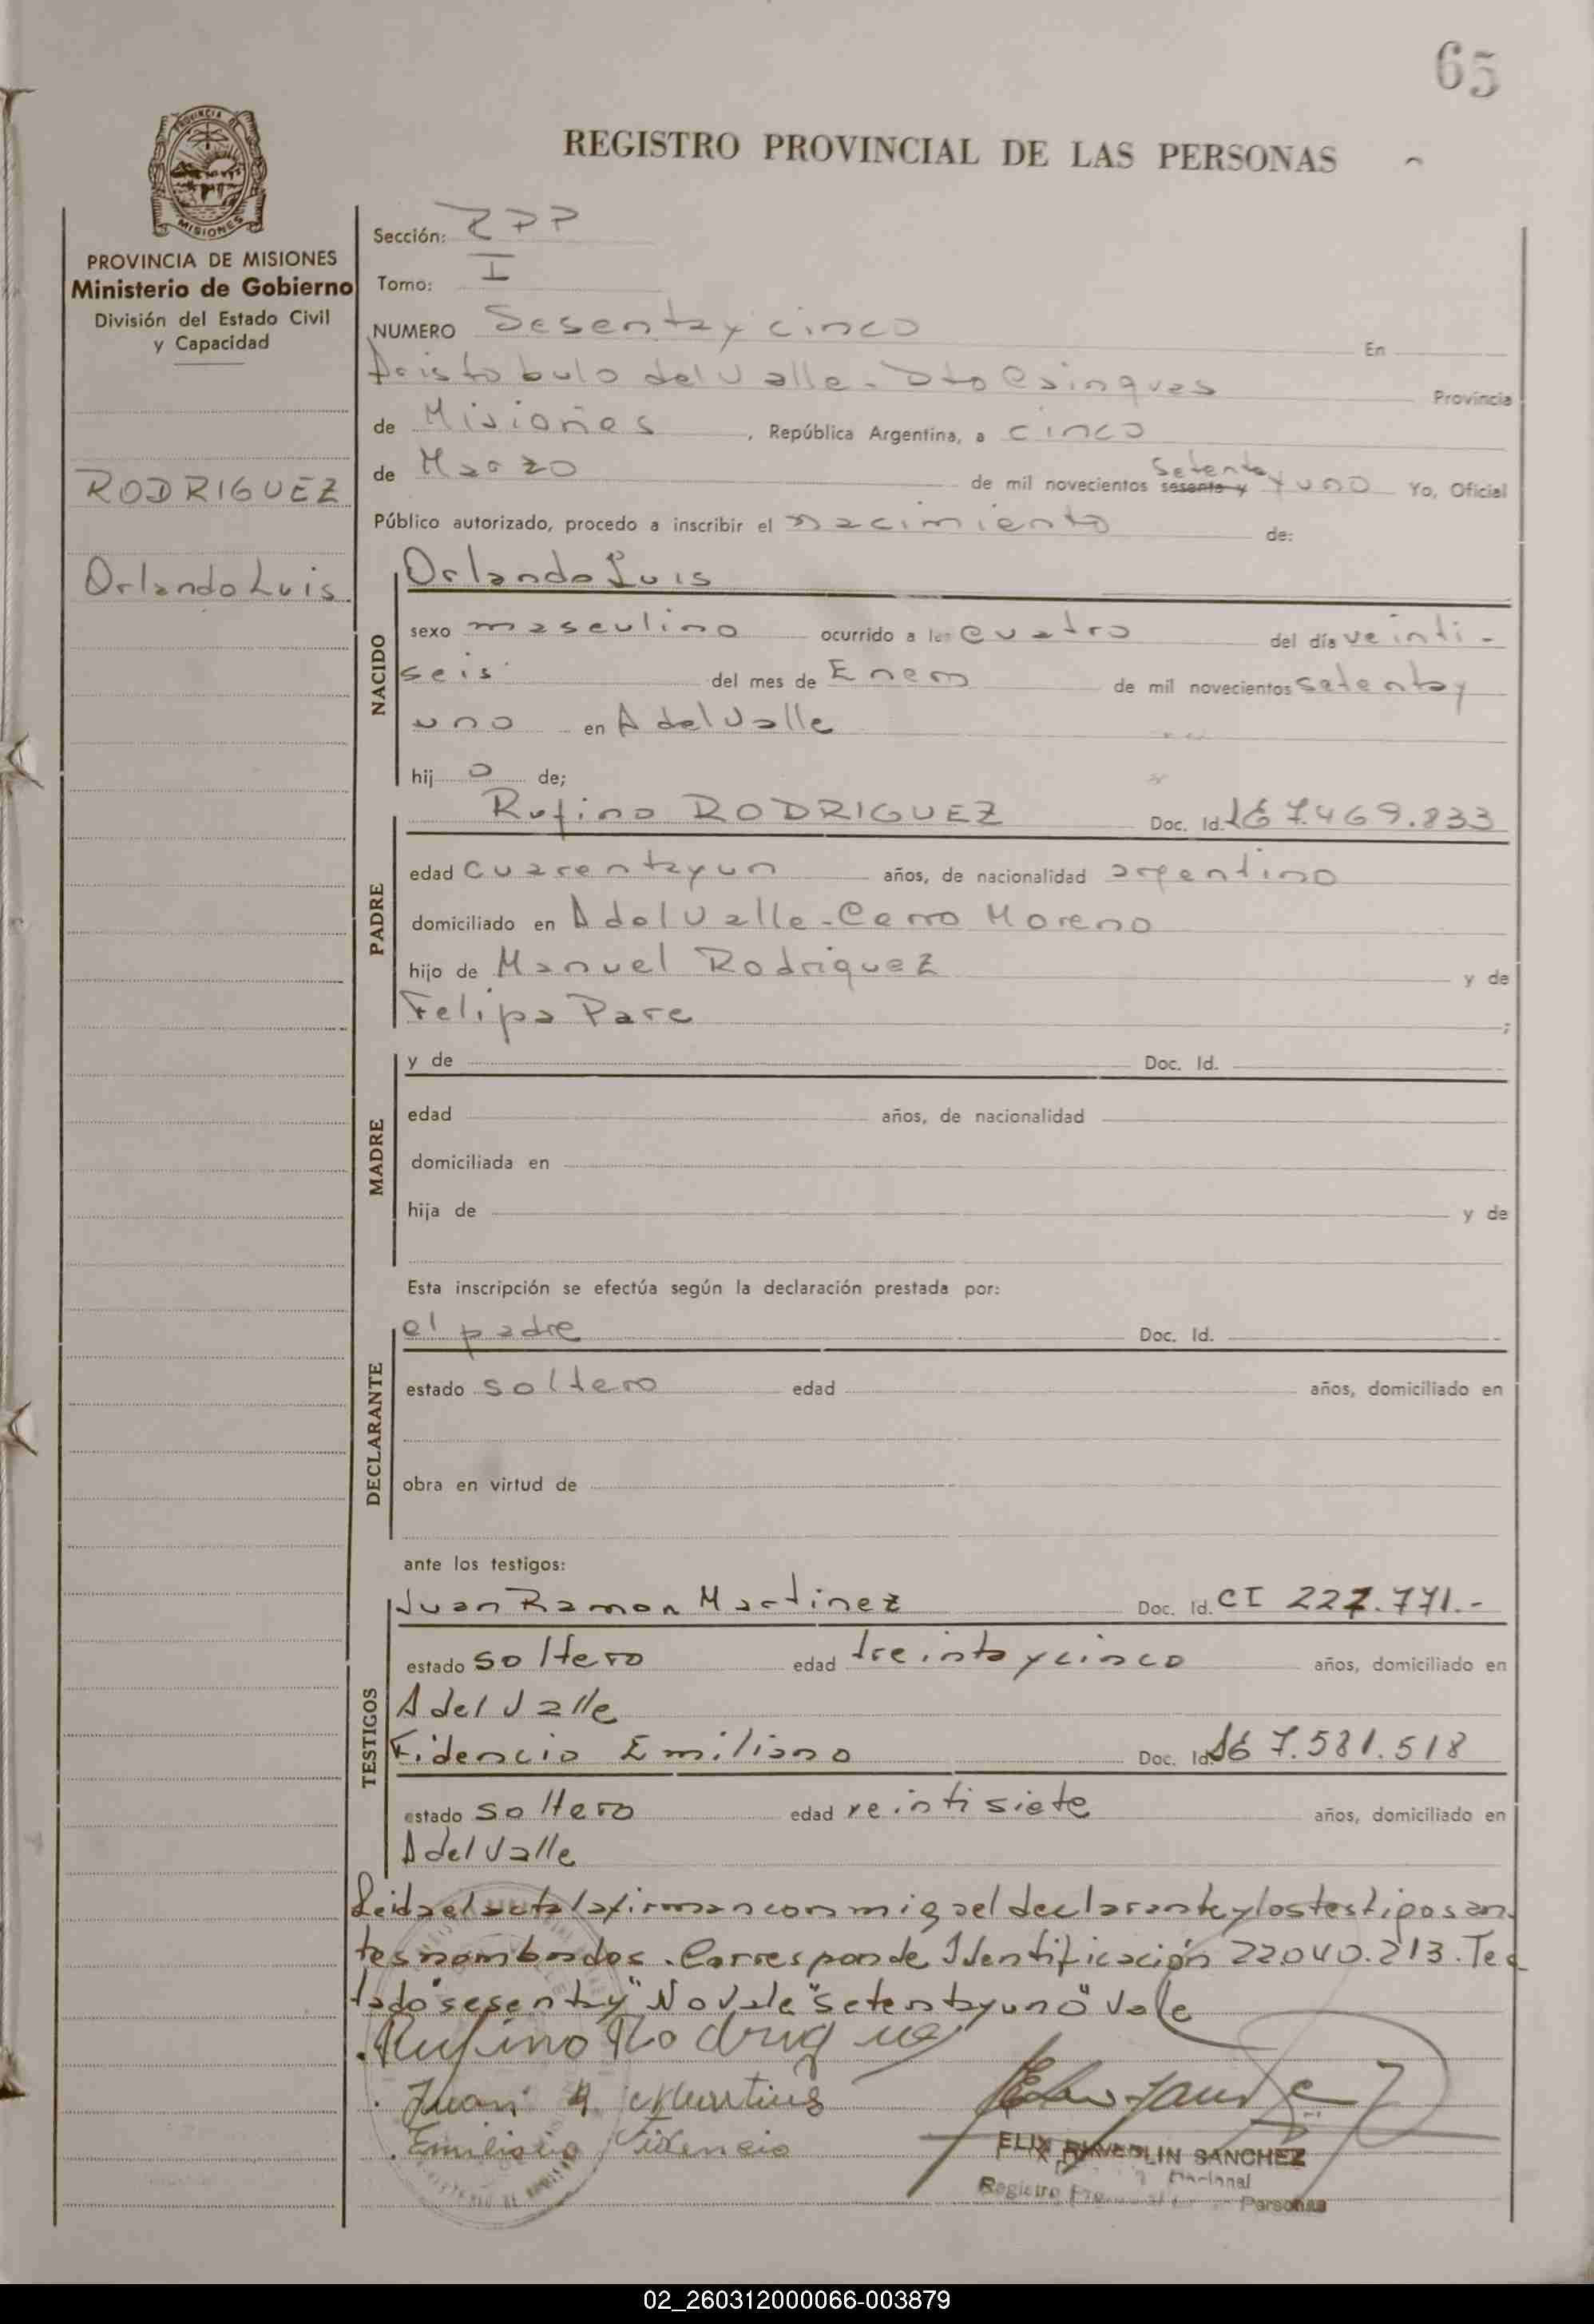 65
REGISTRO PROVINCIAL DE LAS PERSONAS
PROVINCIA DE MISIONES
Ministerio de Gobierno
División del Estado Civil
y Capacidad
RODRIGUEZ
Orlando Luis
Sección:
Tomo: I
NUMERO Sesenta y cinco En
Aristobulo del Valle - Dto Cainguas Provincia
de Misiones, República Argentina, a cinco
de Marzo de mil novecientos sesenta y Setenta y uno Yo, Oficial
Público autorizado, procedo a inscribir el nacimiento de:
NACIDO
Orlando Luis
sexo masculino ocurrido a las cuatro del día veinti-
seis del mes de Enero de mil novecientos setenta y
uno en A del Valle
hij o de;
PADRE
Rufino RODRIGUEZ Doc. Id. 7.469.833
edad cuarenta y un años, de nacionalidad argentino
domiciliado en A del Valle - Cerro Moreno
hijo de Manuel Rodriguez y de
Felipa Pare ;
MADRE
y de Doc. Id.
edad años, de nacionalidad
domiciliada en
hija de y de
Esta inscripción se efectúa según la declaración prestada por:
DECLARANTE
el padre Doc. Id.
estado soltero edad años, domiciliado en
obra en virtud de
ante los testigos:
TESTIGOS
Juan Ramon Martinez Doc. Id. CI 227.771.-
estado soltero edad treinta y cinco años, domiciliado en
A del Valle
Fidencio Emiliano Doc. Id. 7.581.518
estado soltero edad veintisiete años, domiciliado en
A del Valle
Leida el acta la firman conmigo el declarante y los testigos an-
tes nombrados. Corresponde Identificación 22.040.213. Tes
tado "sesenta y" No vale "setenta y uno" Vale
Rufino Rodriguez
Juan
Emiliano Fidencio
SANCHEZ
Registro
Personas
02_260312000066-003879